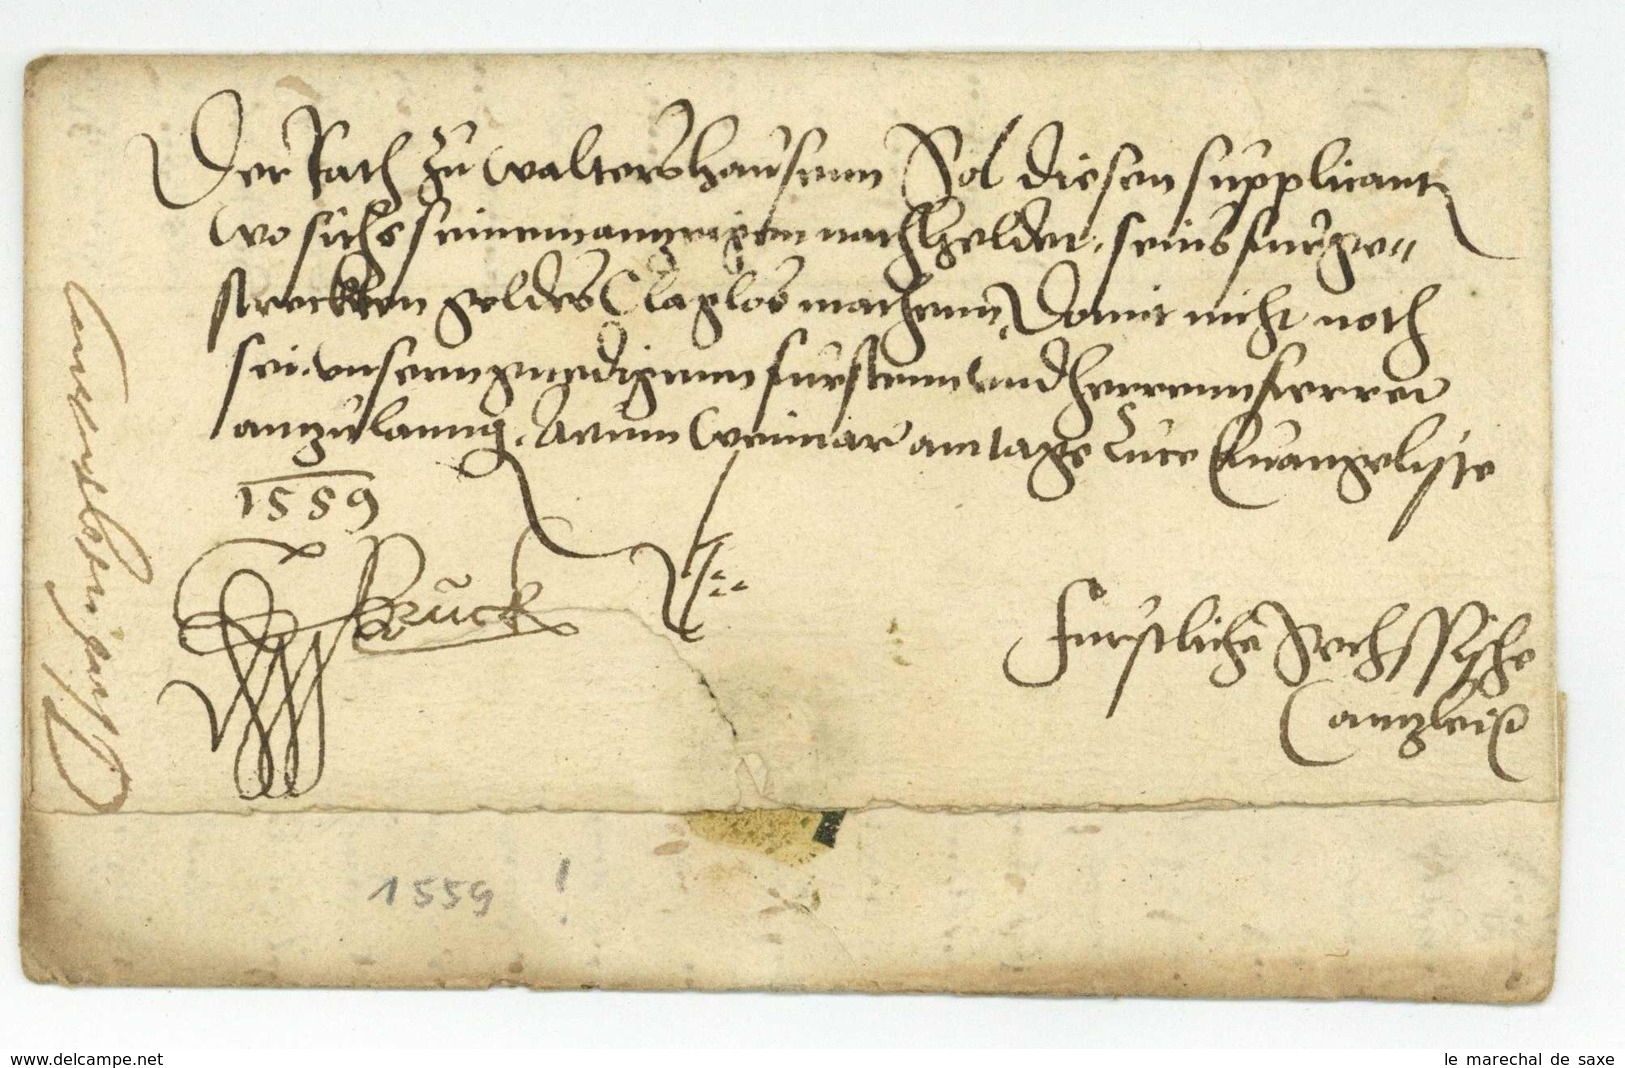 Der Rath zu Waltershausenn Sol diesen supplicant
wo sichs seinem anzeigen nach heldet, seins furge„
streckten geldes Claglos machenn, Domit nicht noth
sei, unsern gnedigenn furstenn und herrenn ferrer
anzulanng. Actum Weimar am tage Luce Euangeliste
1559
Bruck
Furstliche Sechssische
Canzlei
1559 !
www.delcampe.net
le marechal de saxe